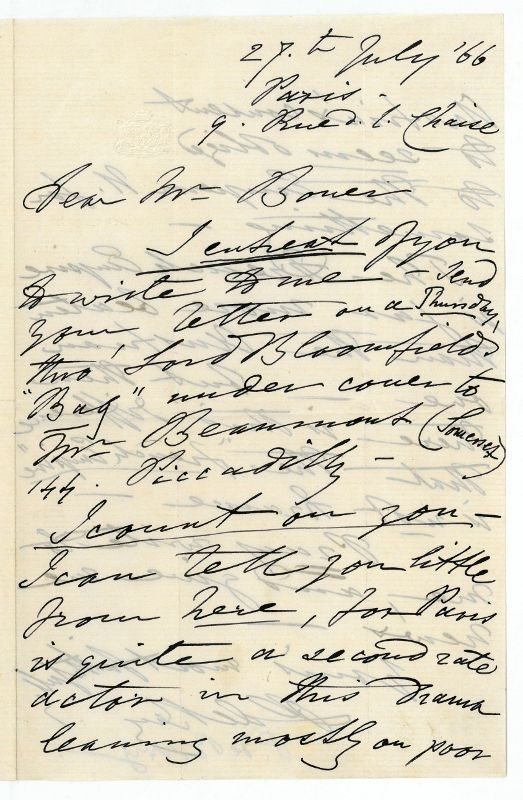 27.th July '66
Paris -
9. Rue d. l. Chaise
Dear Mr Bower
I entreat of you
to write to me - send
your letter on a Thursday,
thro' Lord Bloomfield's
"Bag" under cover to
Mr Beaumont (Somerset)
144. Piccadilly -
I count on you -
I can tell you little
from here, for Paris
is quite a second rate
actor in this drama
leaning mostly on poor